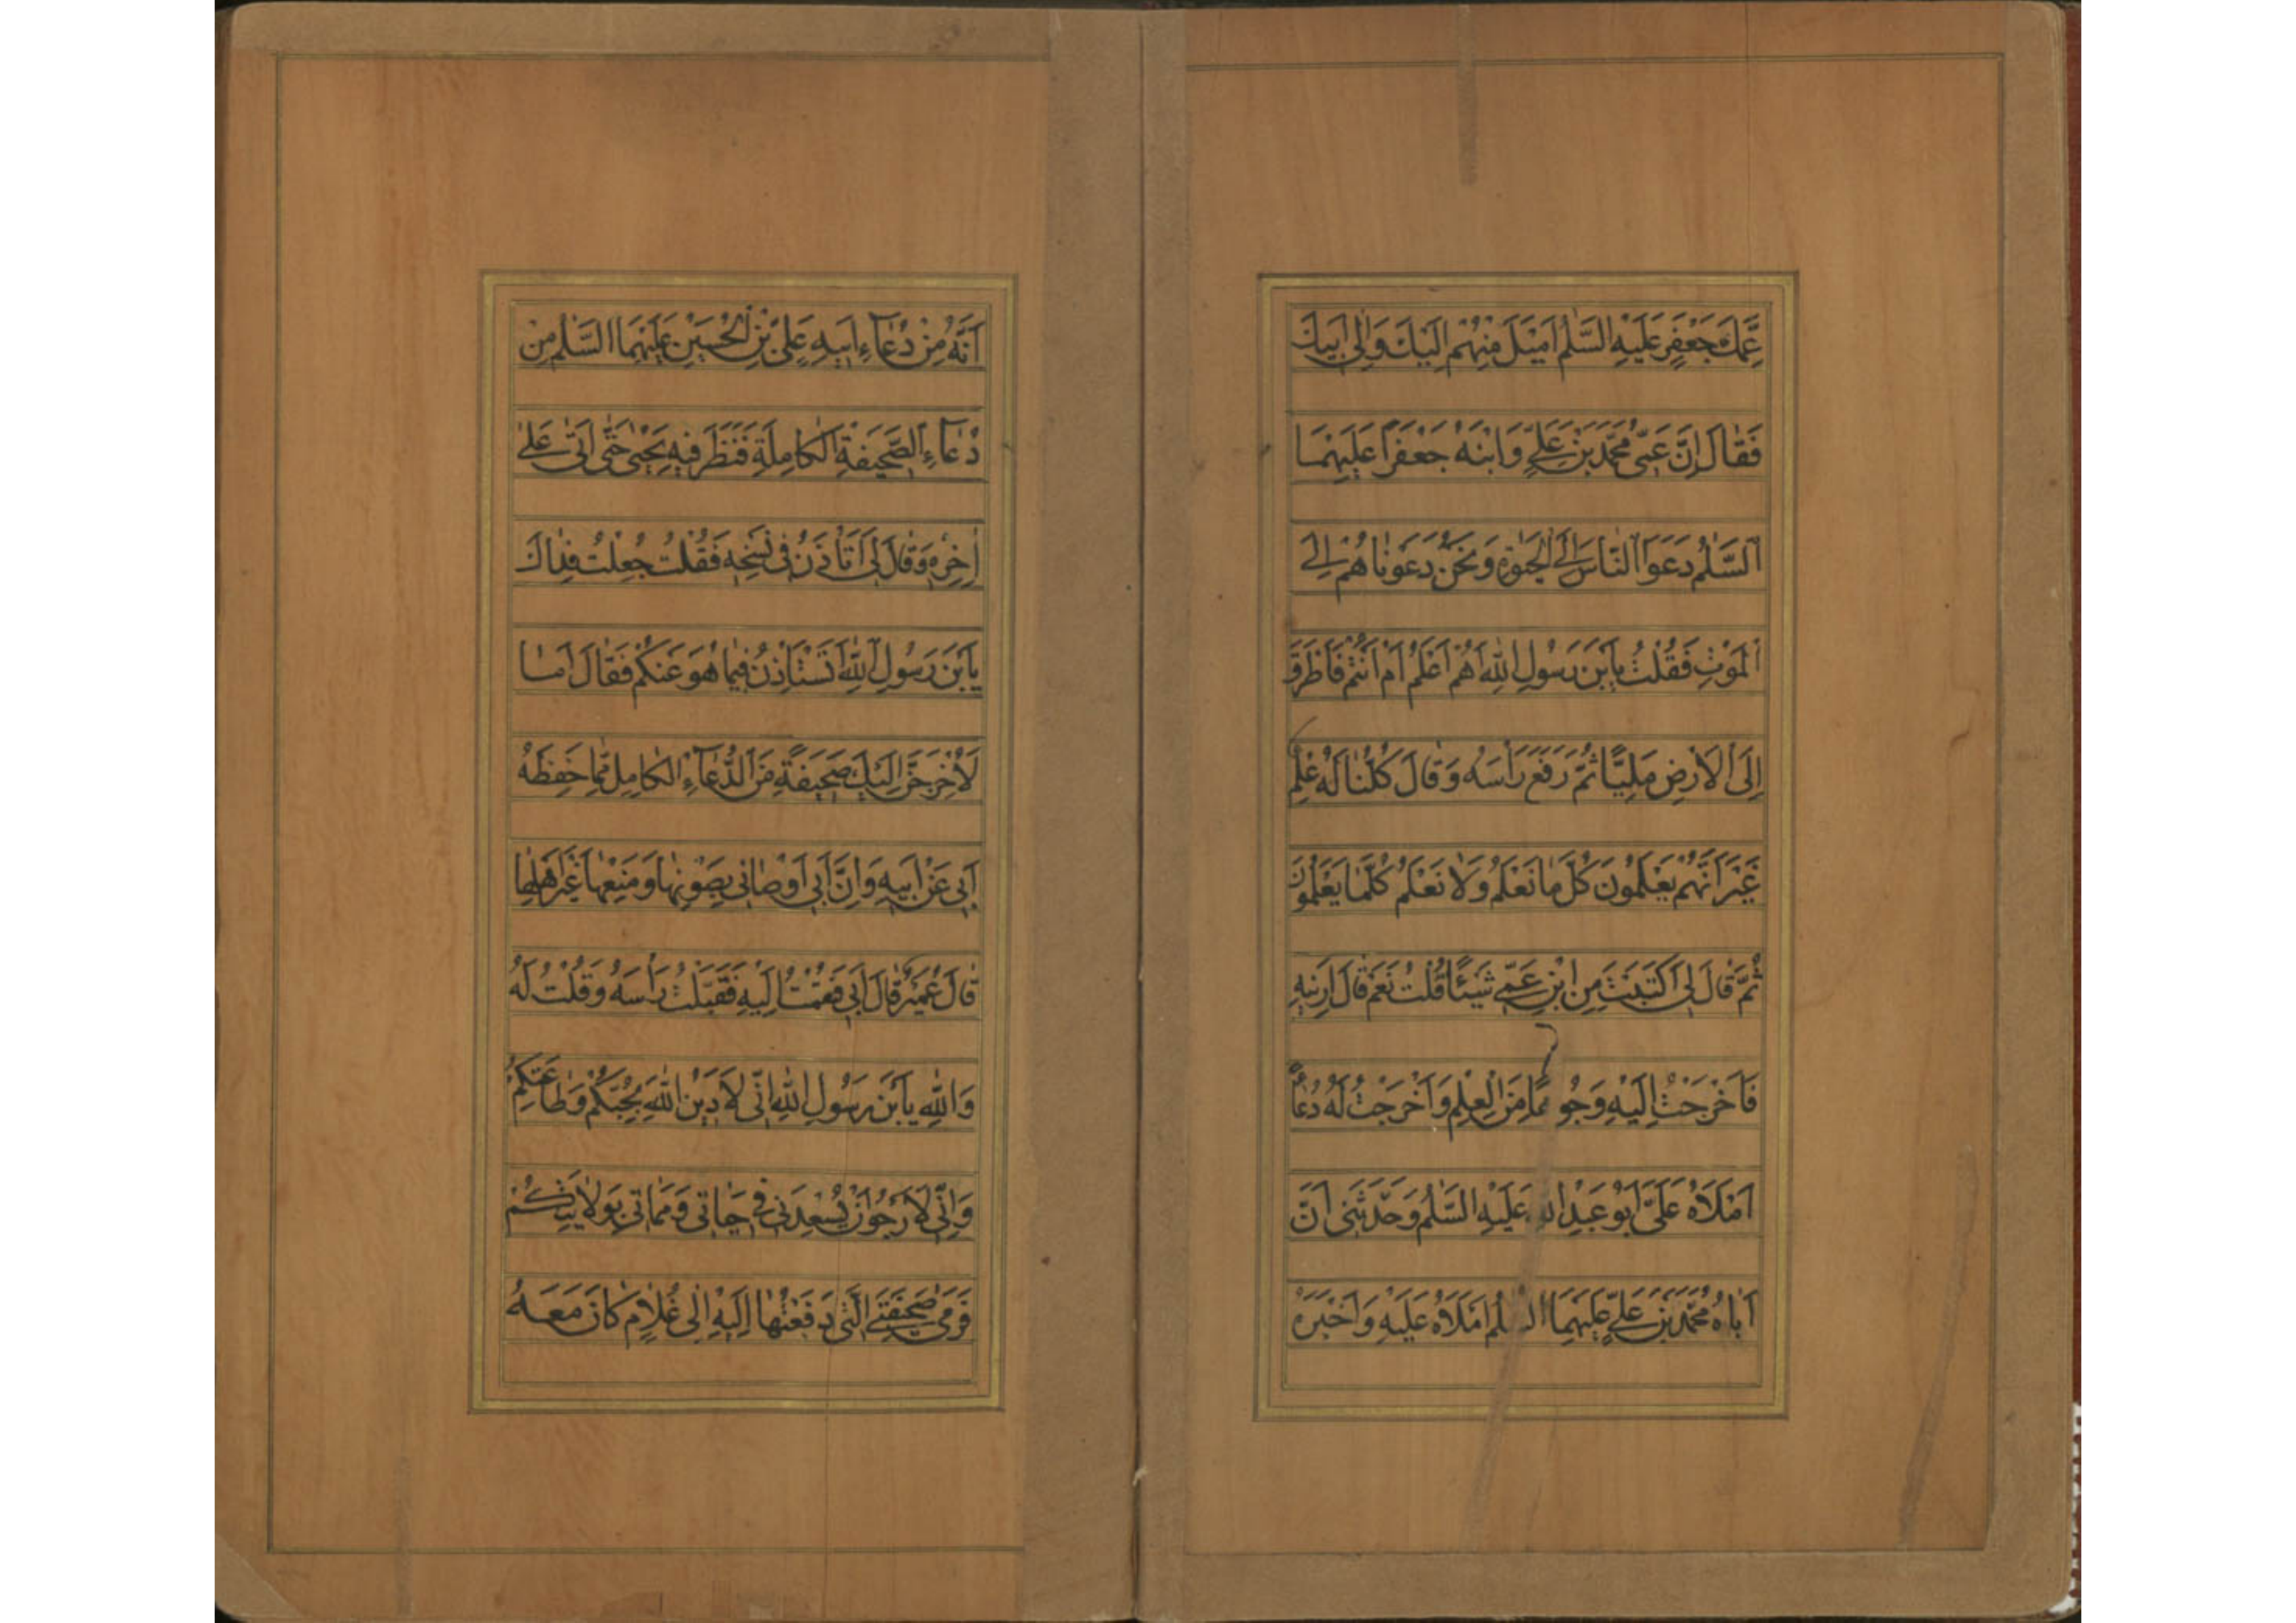 عَمِّكَ جَعْفَرٍ عَلَيْهِ السَّلٰمُ اَمْيَلَ مِنْهُمْ اِلَيْكَ وَاِلٰى اَبِيكَ
فَقَالَ اِنَّ عَمِّى مُحَمَّدَ بْنَ عَلِىٍّ وَابْنَهُ جَعْفَرًا عَلَيْهِمَا
السَّلٰمُ دَعَوَا النَّاسَ اِلَى الْحَيٰوةِ وَنَحْنُ دَعَوْنَاهُمْ اِلَى
الْمَوْتِ فَقُلْتُ يَابْنَ رَسُولِ اللّٰهِ اَهُمْ اَعْلَمُ اَمْ اَنْتُمْ فَاَطْرَقَ
اِلَى الْاَرْضِ مَلِيًّا ثُمَّ رَفَعَ رَأْسَهُ وَقَالَ كُلُّنَا لَهُ عِلْمٌ
غَيْرَ اَنَّهُمْ يَعْلَمُونَ كُلَّ مَا نَعْلَمُ وَلَا نَعْلَمُ كُلَّمَا يَعْلَمُونَ
ثُمَّ قَالَ لِى اَكَتَبْتَ مِنِ ابْنِ عَمِّى شَيْئًا قُلْتُ نَعَمْ قَالَ اَرِنِيهِ
فَاَخْرَجْتُ اِلَيْهِ وُجُوهًا مِنَ الْعِلْمِ وَاَخْرَجْتُ لَهُ دُعَاءً
اَمْلَاهُ عَلَىَّ اَبُو عَبْدِ اللّٰهِ عَلَيْهِ السَّلٰمُ وَحَدَّثَنِى اَنَّ
اَبَاهُ مُحَمَّدَ بْنَ عَلِىٍّ عَلَيْهِمَا السَّلٰمُ اَمْلَاهُ عَلَيْهِ وَاَخْبَرَهُ
اَنَّهُ مِنْ دُعَآءِ اَبِيهِ عَلِىِّ بْنِ الْحُسَيْنِ عَلَيْهِمَا السَّلٰمُ مِنْ
دُعَآءِ الصَّحِيفَةِ الْكَامِلَةِ فَنَظَرَ فِيهِ يَحْيٰى حَتّٰى اَتٰى عَلٰى
اٰخِرِهِ وَقَالَ لِى اَتَأْذَنُ فِى نَسْخِهِ فَقُلْتُ جُعِلْتُ فِدَاكَ
يَابْنَ رَسُولِ اللّٰهِ اَتَسْتَأْذِنُ فِيمَا هُوَ عَنْكُمْ فَقَالَ اَمَا
لَاُخْرِجَنَّ اِلَيْكَ صَحِيفَةً مِنَ الدُّعَآءِ الْكَامِلِ مِمَّا حَفِظَهُ
اَبِى عَنْ اَبِيهِ وَاِنَّ اَبِى اَوْصَانِى بِصَوْنِهَا وَمَنْعِهَا غَيْرَ اَهْلِهَا
قَالَ عُمَيْرٌ قَالَ اَبِى فَقُمْتُ اِلَيْهِ فَقَبَّلْتُ رَأْسَهُ وَقُلْتُ لَهُ
وَاللّٰهِ يَابْنَ رَسُولِ اللّٰهِ اِنِّى لَاَدِينُ اللّٰهَ بِحُبِّكُمْ وَطَاعَتِكُمْ
وَاِنِّى لَاَرْجُو اَنْ يُسْعِدَنِى فِى حَيَاتِى وَمَمَاتِى بِوَلَايَتِكُمْ
فَرَمٰى صَحِيفَتِىَ الَّتِى دَفَعْتُهَا اِلَيْهِ اِلٰى غُلَامٍ كَانَ مَعَهُ